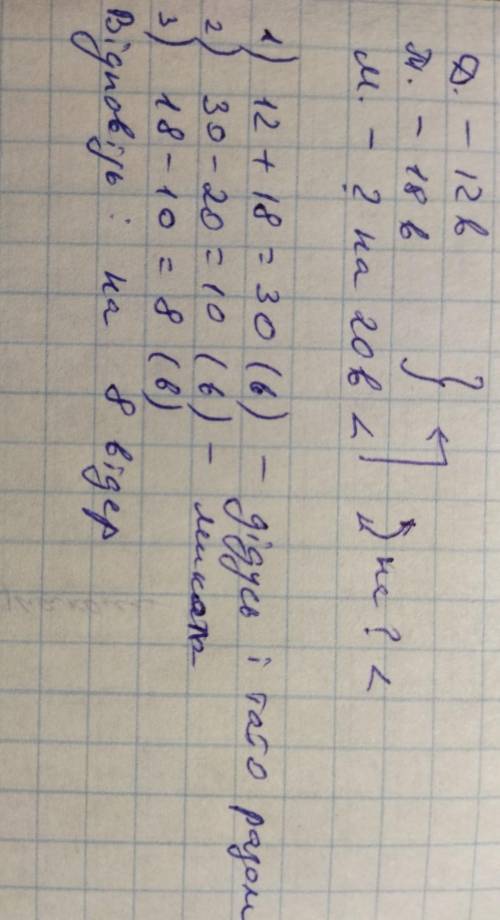 Д. – 12 в
Т. – 18 в
М. – ? на 20 в < на ? <
1) 12 + 18 = 30 (в) – дідусь і тато разом
2) 30 – 20 = 10 (в) –
3) 18 – 10 = 8 (в)
Відповідь: на 8 відер